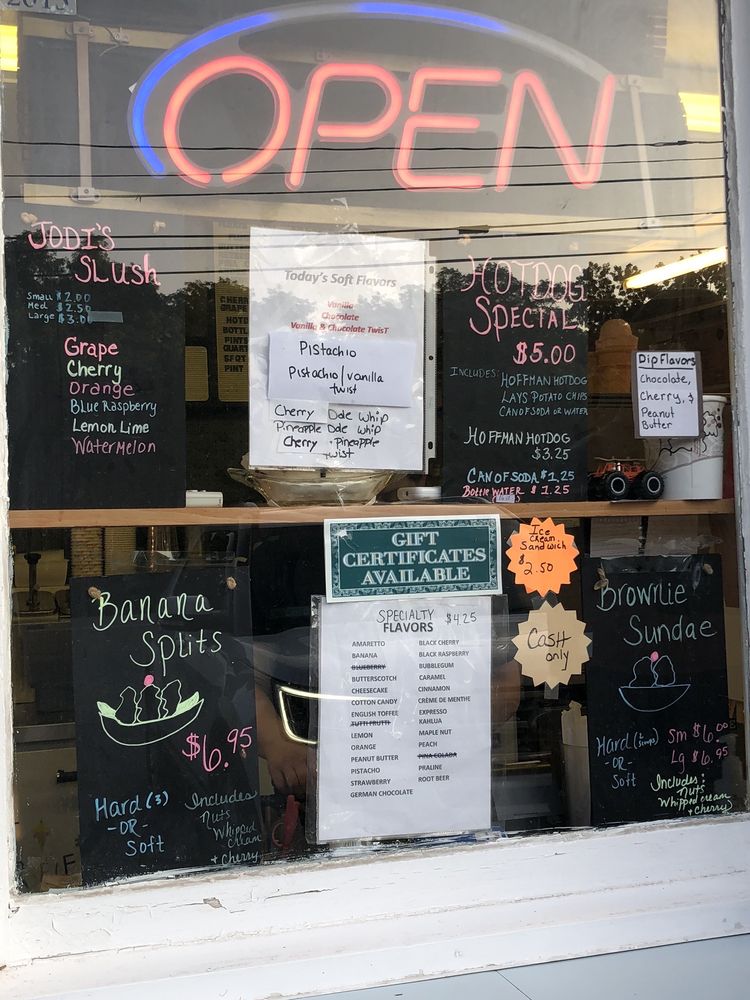 2015
OPEN
JODI'S
SLUSH
Small $2.00
Med $2.50
Large $3.00
Grape
Cherry
Orange
Blue Raspberry
Lemon Lime
Watermelon
CHERR
GRAPE
HOTD
BOTTL
PINTS
QUART
PINT
Today's Soft Flavors
Vanilla
Chocolate
Vanilla & Chocolate TwisT
Pistachio
Pistachio/vanilla
twist
Cherry Dole Whip
Pineapple Dole Whip
Cherry + Pineapple
twist
HOTDOG
SPECIAL
$5.00
INCLUDES: HOFFMAN HOTDOG
LAYS POTATO CHIPS
CAN OF SODA OR WATER
HOFFMAN HOTDOG
$3.25
CAN OF SODA $1.25
Bottle WATER $1.25
Dip Flavors
Chocolate,
Cherry, &
Peanut
Butter
GIFT
CERTIFICATES
AVAILABLE
Ice
Cream
Sandwich
$2.50
Cash
only
Banana
Splits
$6.95
Hard (3)
-OR-
Soft
Includes
Nuts
Whipped
cream
+ cherry
SPECIALTY $4.25
FLAVORS
AMARETTO
BANANA
BLUEBERRY
BUTTERSCOTCH
CHEESECAKE
COTTON CANDY
ENGLISH TOFFEE
TUTTI FRUTTI
LEMON
ORANGE
PEANUT BUTTER
PISTACHIO
STRAWBERRY
GERMAN CHOCOLATE
BLACK CHERRY
BLACK RASPBERRY
BUBBLEGUM
CARAMEL
CINNAMON
CRÈME DE MENTHE
EXPRESSO
KAHLUA
MAPLE NUT
PEACH
PINA COLADA
PRALINE
ROOT BEER
Brownie
Sundae
Hard Sm $6.00
-OR- Lg $6.95
Soft
Includes:
Nuts
Whipped cream
& cherry